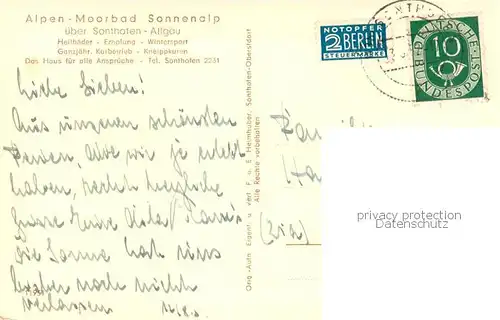 Alpen-Moorbad Sonnenalp
über Sonthofen - Allgäu
Heilbäder - Erholung - Wintersport
Ganzjähr. Kurbetrieb - Kneippkuren
Das Haus für alle Ansprüche - Tel. Sonthofen 2231
NOTOPFER
2 BERLIN
STEUERMARKE
DEUTSCHE
10
BUNDESPOST
Liebe Lieben!
Aus unseren schönsten
Ferien, die wir je erlebt
haben, recht herzliche
Grüsse
Die Sonne hat uns
bisher noch nicht
verlassen
Orig.-Aufn. Eigent. u. Verl. F. u. E. Heimhuber, Sonthofen-Oberstdorf
Alle Rechte vorbehalten
privacy protection
Datenschutz